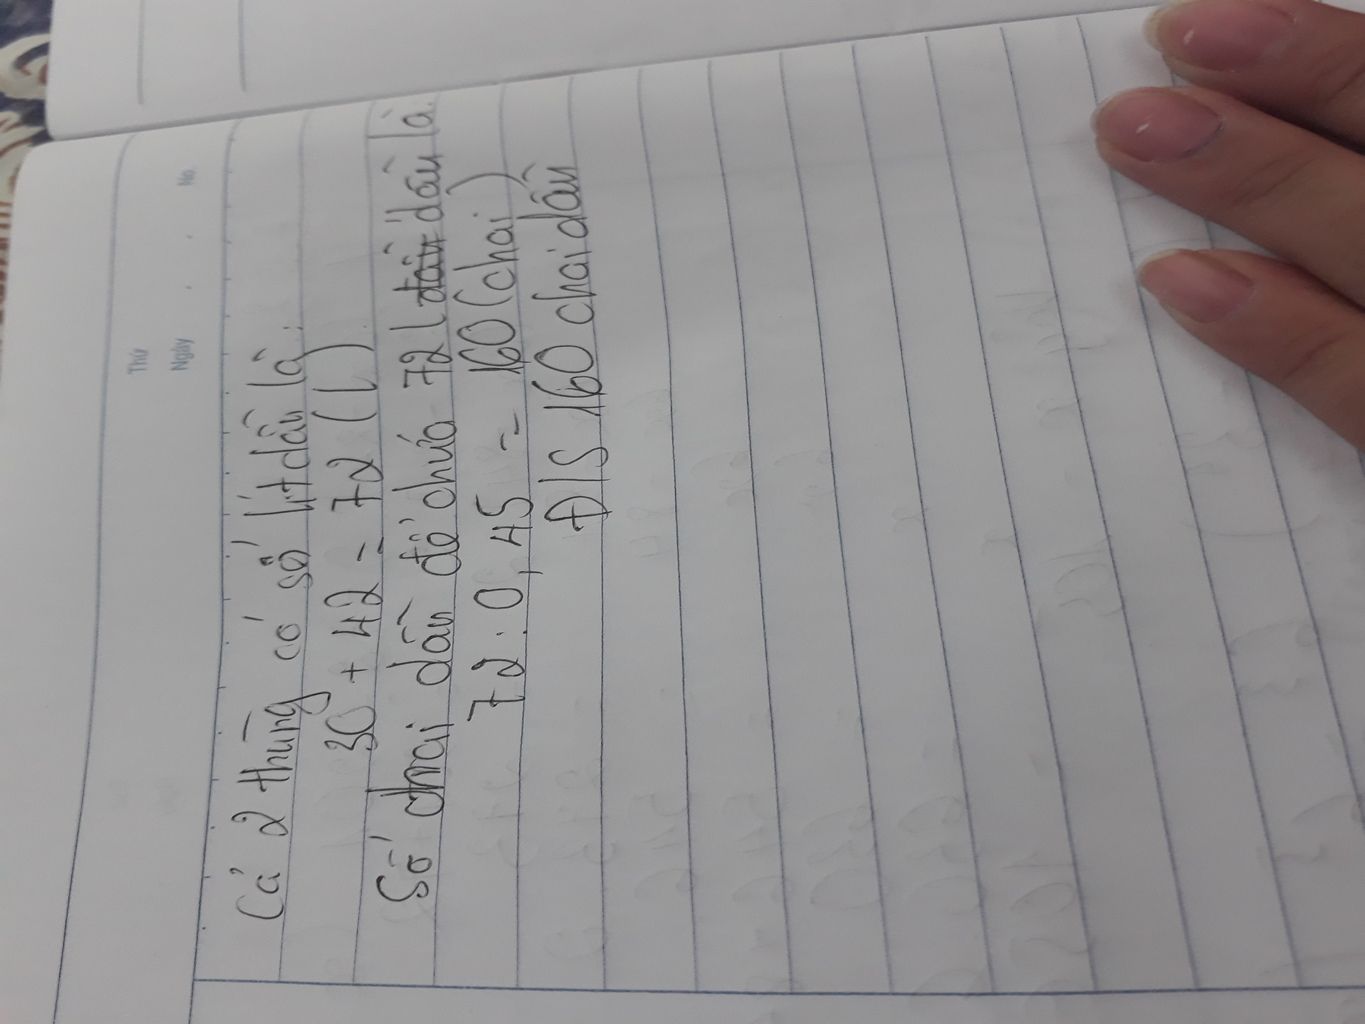 Thứ
Ngày . . No.
Cả 2 thùng có số lít dầu là:
30 + 42 = 72 (l)
Số chai dầu để chứa 72 l dầu dầu là:
72 : 0,45 = 160 (chai)
Đ/S 160 chai dầu